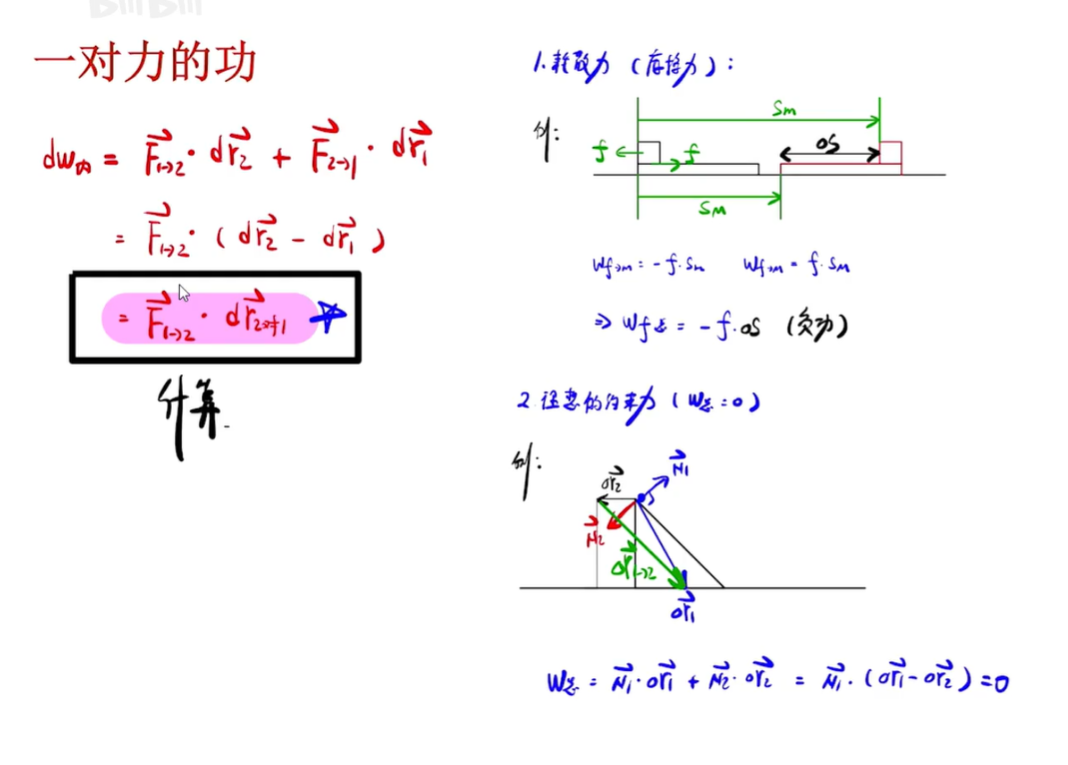 一对力的功
dW内 = F⃗1→2 · dr⃗2 + F⃗2→1 · dr⃗1
= F⃗1→2 · (dr⃗2 - dr⃗1)
= F⃗1→2 · dr⃗2对1
计算.
1. 耗散力 ( ):
例:
Sm
f f ΔS
SM
Wf→m = -f·Sm Wf→M = f·SM
⇒ Wf总 = -f·ΔS (负功)
2 理想的约束力 (W总=0)
例:
N⃗1
Δr⃗2
N⃗2
Δr⃗1→2
Δr⃗1
W总 = N⃗1·Δr⃗1 + N⃗2·Δr⃗2 = N⃗1·(Δr⃗1-Δr⃗2)=0